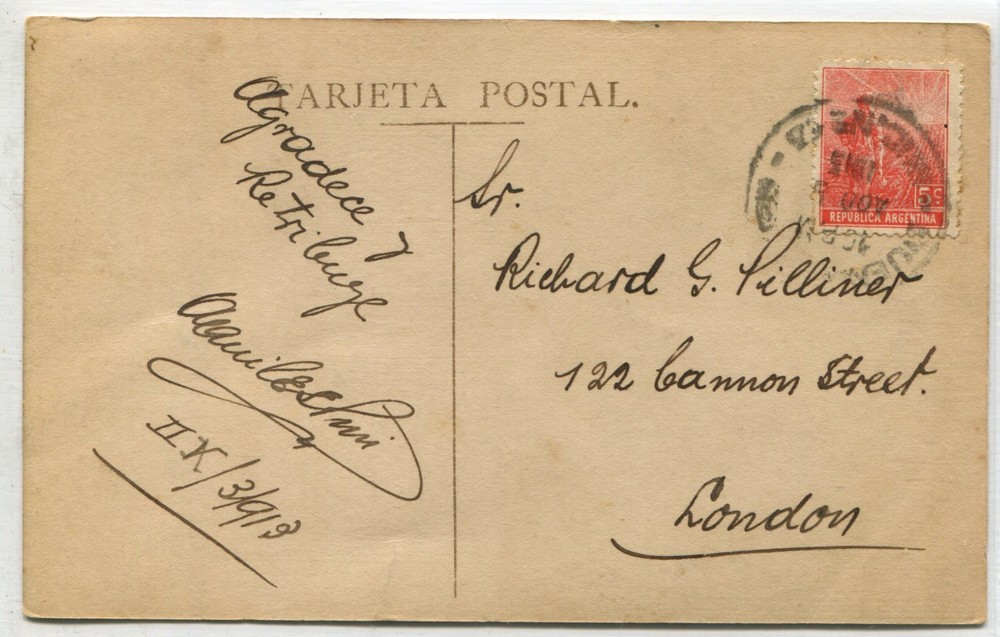 TARJETA POSTAL.
Agradece y
Retribuye
II V/3/913
Sr.
Richard G. Pilliner
122 Cannon Street.
London
5c
REPUBLICA ARGENTINA